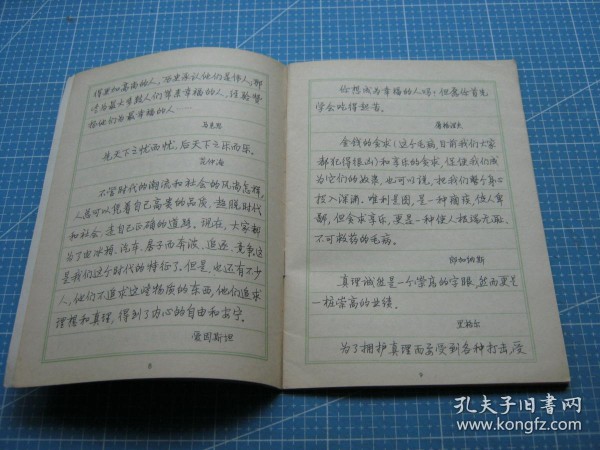 得更加高尚的人，历史承认他们是伟人；那
些为最大多数人们带来幸福的人，经验赞
扬他们为最幸福的人——
马克思
先天下之忧而忧，后天下之乐而乐。
范仲淹
不管时代的潮流和社会的风尚怎样，
人总可以凭着自己高贵的品质，超脱时代
和社会，走自己正确的道路。现在，大家都
为了电冰箱、汽车、房子而奔波，追逐，竞争。这
是我们这个时代的特征了。但是，也还有不少
人，他们不追求这些物质的东西，他们追求
理想和真理，得到了内心的自由和安宁。
爱因斯坦
8
你想成为幸福的人吗？但愿你首先
学会吃得起苦。
屠格涅夫
金钱的贪求（这个毛病，目前我们大家
都犯得很凶）和享乐的贪求，促使我们成
为它们的奴隶，也可以说，把我们整个身心
投入深渊。唯利是图，是一种痼疾，使人卑
鄙，但贪求享乐，更是一种使人极端无耻，
不可救药的毛病。
郎加纳斯
真理诚然是一个崇高的字眼，然而更是
一桩崇高的业绩。
黑格尔
为了拥护真理而要受到各种打击，受
9
孔夫子旧书网
www.kongfz.com